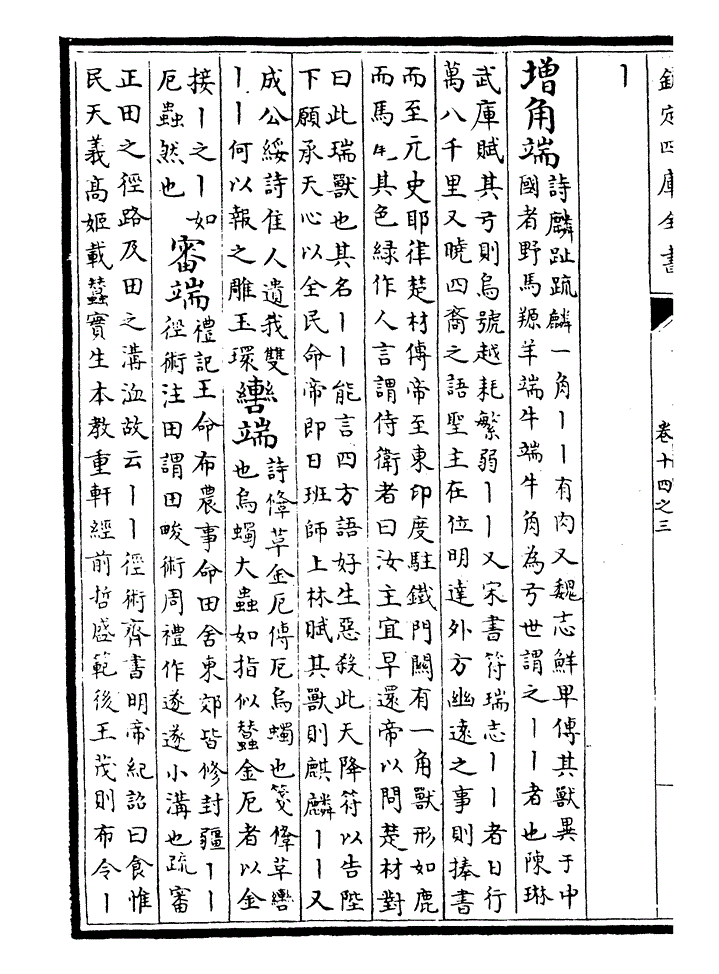 欽定四庫全書
卷十四之三
丨
增角端
詩麟趾疏麟一角丨丨有肉又魏志鮮卑傳其獸異于中
國者野馬羱羊端牛端牛角為弓世謂之丨丨者也陳琳
武庫賦其弓則烏號越耗繁弱丨丨又宋書符瑞志丨丨者日行
萬八千里又曉四裔之語聖主在位明達外方幽遠之事則捧書
而至元史耶律楚材傳帝至東印度駐鐵門關有一角獸形如鹿
而馬尾其色綠作人言謂侍衛者曰汝主宜早還帝以問楚材對
曰此瑞獸也其名丨丨能言四方語好生惡殺此天降符以告陛
下願承天心以全民命帝即日班師上林賦其獸則麒麟丨丨又
成公綏詩佳人遺我雙
丨丨何以報之雕玉環
轡端
詩鞗革金厄傳厄烏蠋也箋鞗革轡
也烏蠋大蟲如指似蠶金厄者以金
接丨之丨如
厄蟲然也
審端
禮記王命布農事命田舍東郊皆修封疆丨丨
徑術注田謂田畯術周禮作遂遂小溝也疏審
正田之徑路及田之溝洫故云丨丨徑術齊書明帝紀詔曰食惟
民天義高姬載蠶實生本教重軒經前哲盛範後王茂則布令丨